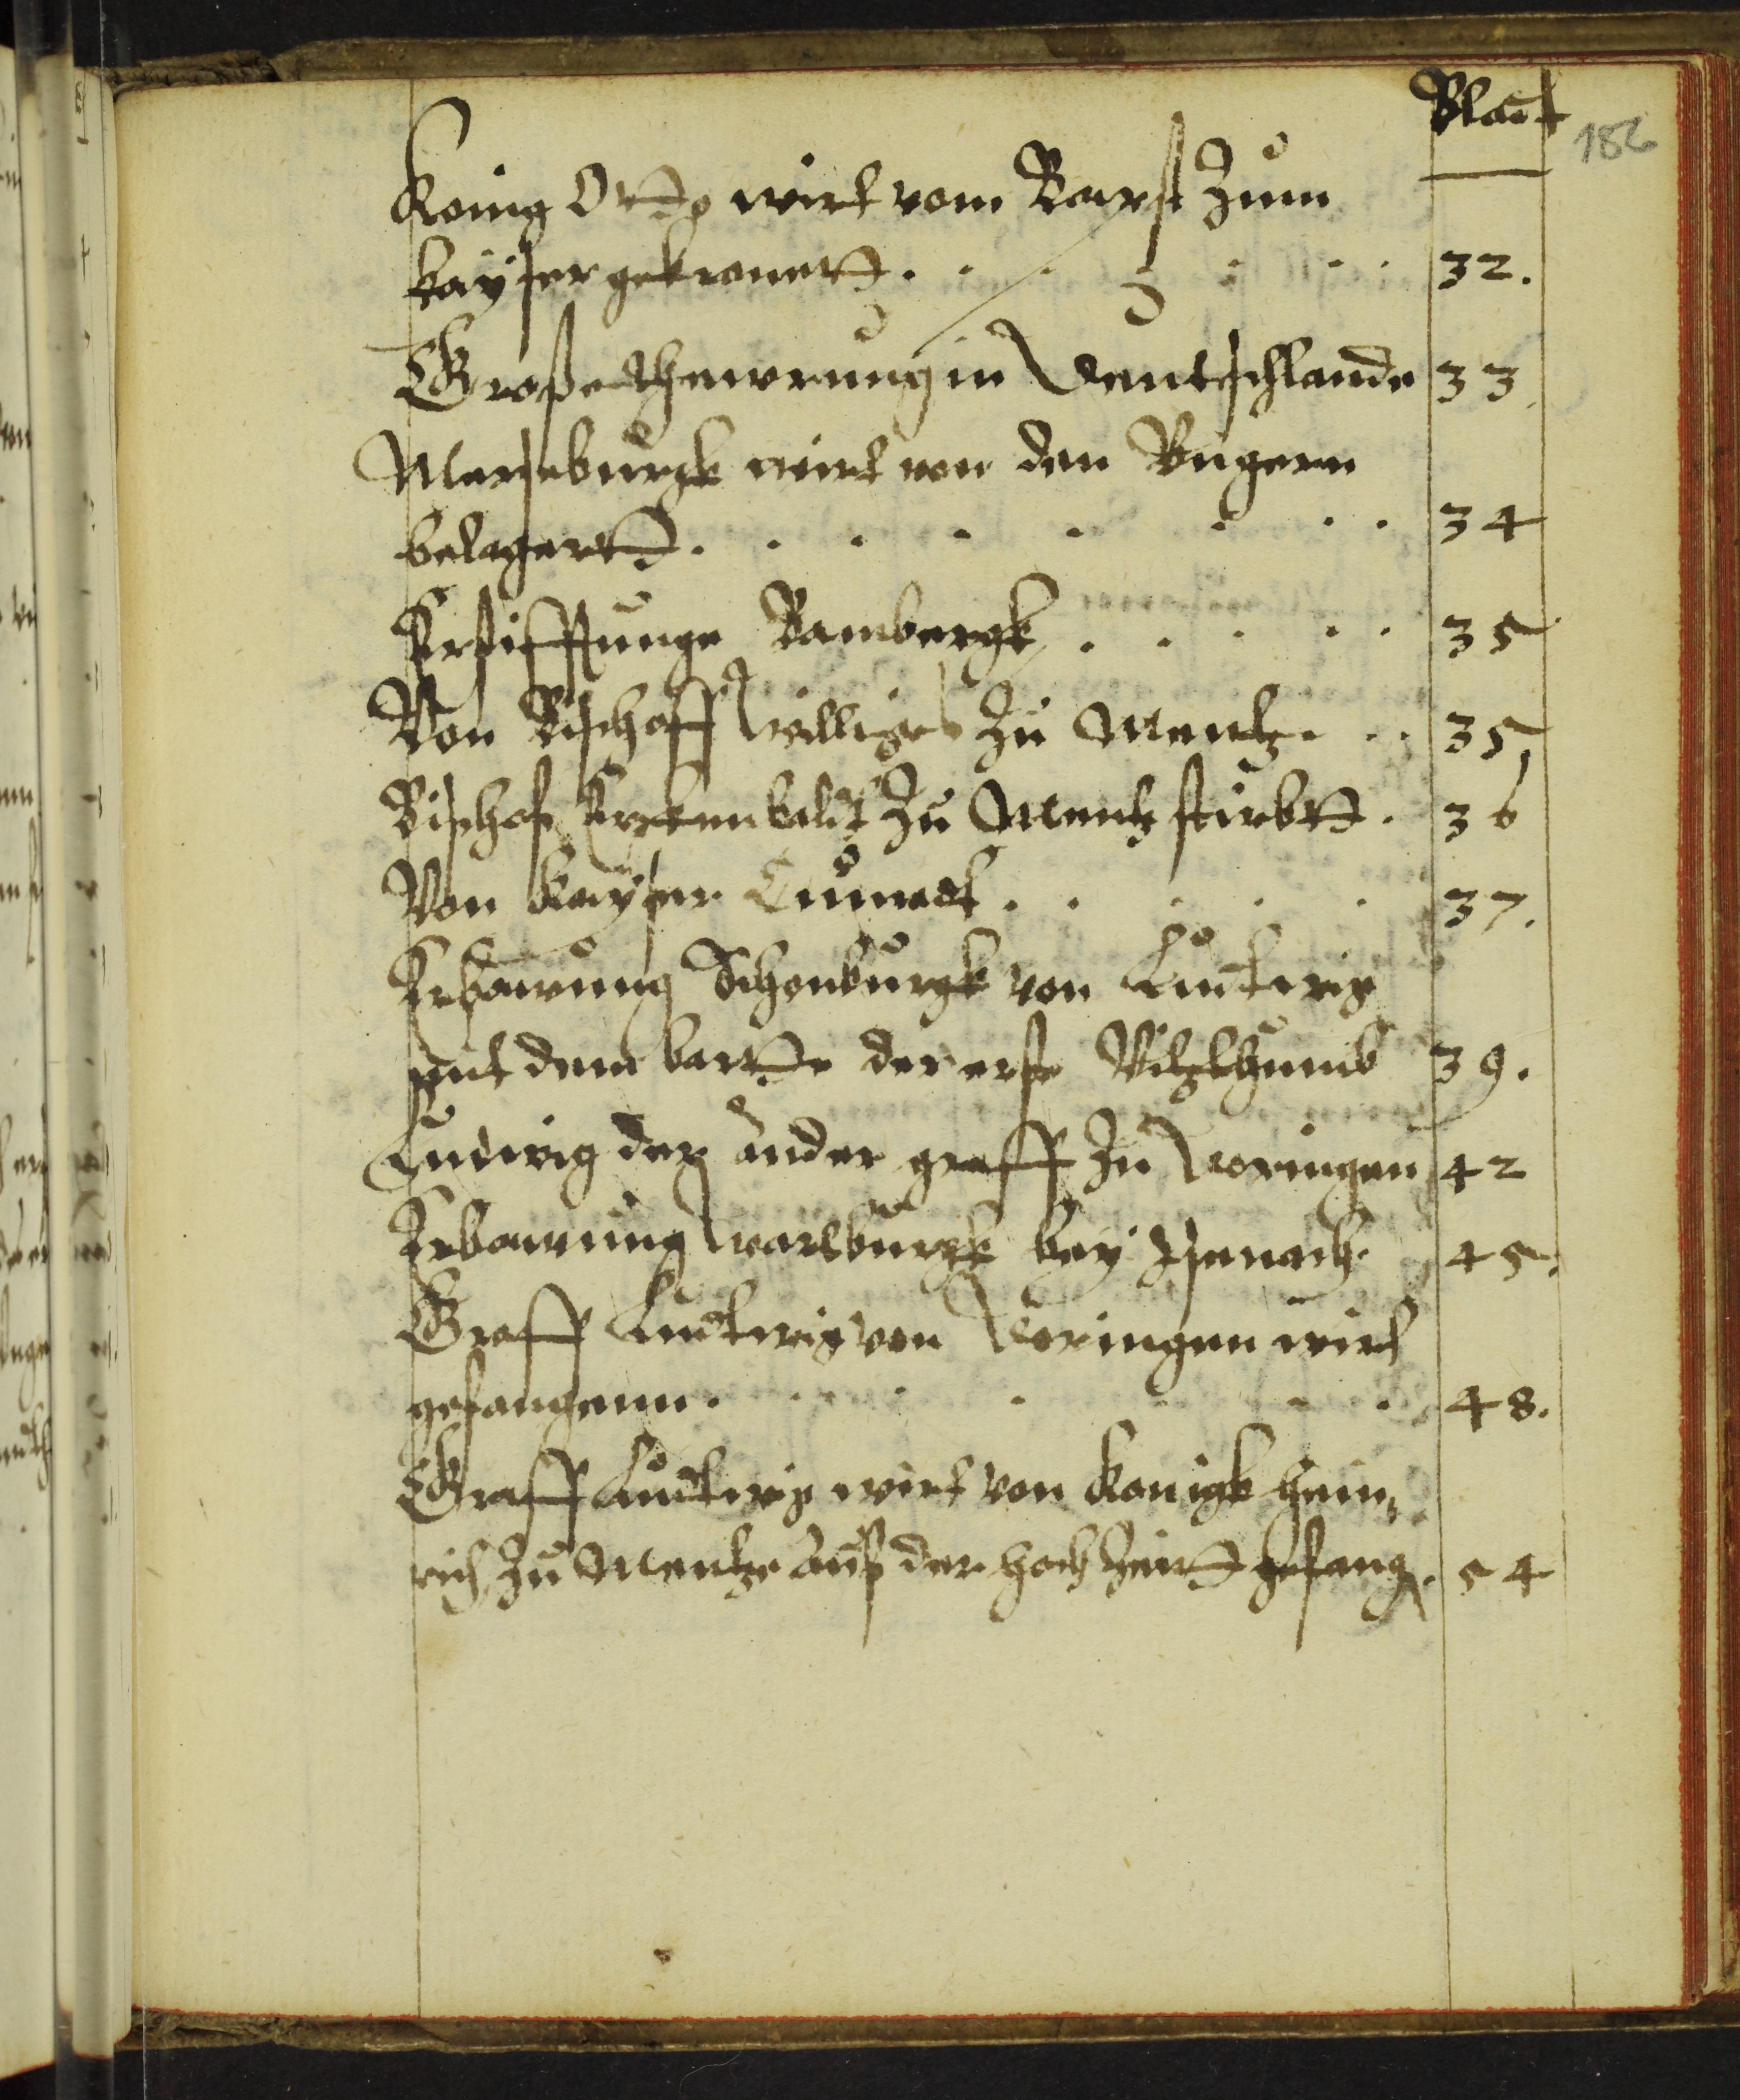 Blat
186
Konig Otto wirt vom Bapst zum
kayser gekronett . . . . . . . 32.
Große thewrung in Deutschlande 33
Merseburgk wirt von den Vngern
belagertt . . . . . . . . 34
Erstifftunge Bambergk . . . . . 35
Von Bischoff Williges zu Mentz . . . 35
Bischof Erkenbalt zu Mentz stirbtt . 36
Von Kayser Cunradt . . . . . 37.
Erbawung Schonburgk von Ludtwig
mit dem bartte der erste Vitzthumb 39.
Ludwig der ander graff zu Doringen 42
Erbawung Wartburgk bey Isenach. 45.
Graff Ludtwig von Doringen wirt
gefangenn . . . . . . . 48.
Graff Ludtwig wirt von Konigk Hein,
rich zu Mentze auß der hochzeitt gefang. 54